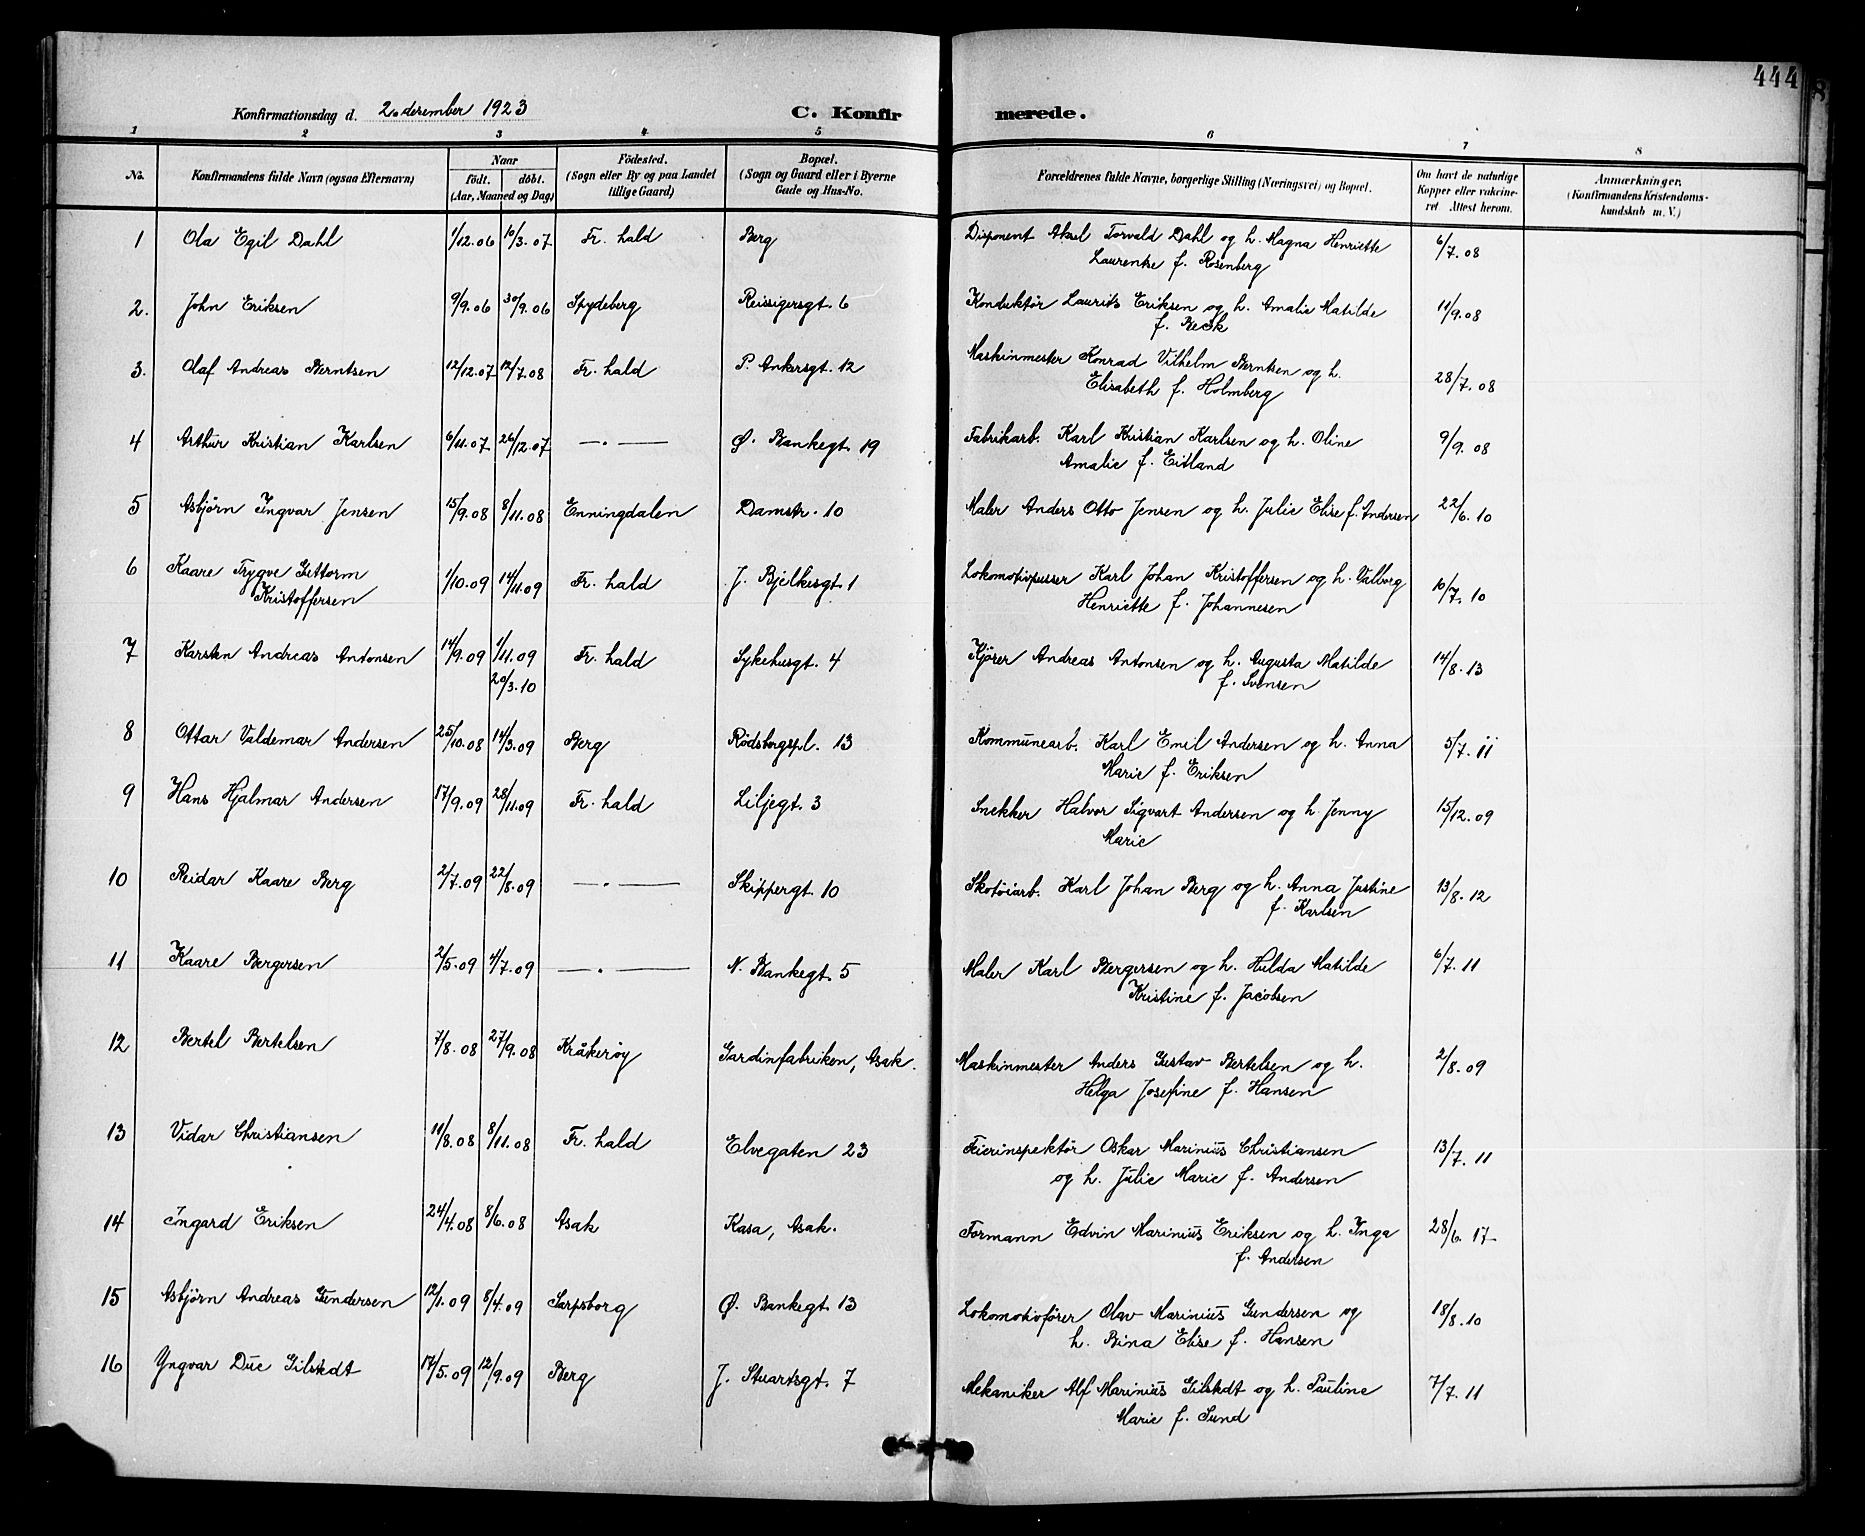 444
Konfirmationsdag d. 2. desember 1923 C. Konfirmerede.
1 2 3 4 5 6 7 8
No. Konfirmandens fulde Navn (ogsaa Efternavn) Naar födt. döbt. (Aar, Maaned og Dag) Födested. (Sogn eller By og paa Landet tillige Gaard) Bopæl. (Sogn og Gaard eller i Byerne Gade og Hus-No. Forældrenes fulde Navne, borgerlige Stilling (Næringsvei) og Bopæl. Om havt de naturlige Kopper eller vakcineret Attest herom. Anmærkninger. (Konfirmandens Kristendomskundskab m. V.)
1 Ola Egil Dahl 1/12.06 10/3.07 Fr. hald Berg Disponent Aksel Torvald Dahl og h. Magna Henriette 6/7.08
Laurentse f. Rosenberg
2. John Eriksen 9/9.06 30/9.06 Spydeberg Reissigersgt. 6 Konduktör Laurits Eriksen og h. Amalie Matilde 11/9.08
f. Beck
3. Olaf Andreas Berntsen 12/12.07 12/7.08 Fr. hald P. Ankersgt. 12 Maskinmester Konrad Vilhelm Berntsen og h. 28/7.08
Elisabeth f. Holmberg
4 Arthur Kristian Karlsen 6/11.07 26/12.07 —.— Ø. Bankegt. 19 Fabrikarb. Karl Kristian Karlsen og h. Oline 9/9.08
Amalie f. Eitland
5 Asbjörn Ingvar Jensen 15/9.08 8/11.08 Enningdalen Damstr. 10 Maler Anders Otto Jensen og h. Julie Elise f. Andersen 22/6.10
6 Kaare Trygve Guttorm 1/10.09 14/11.09 Fr. hald J. Bjelkesgt. 1 Lokomotivpusser Karl Johan Kristoffersen og h. Valborg 10/7.10
Kristoffersen Henriette f. Johannesen
7 Karsten Andreas Antonsen 14/9.09 1/11.09 Fr. hald Sykehusgt. 4 Kjører Andreas Antonsen og h. Augusta Matilde 14/8.13
20/3.10 f. Svensen
8 Ottar Valdemar Andersen 25/10.08 14/3.09 Berg Rödsbergspl. 13 Kommunearb. Karl Emil Andersen og h. Anna 5/7.11
Marie f. Eriksen
9 Hans Hjalmar Andersen 17/9.09 28/11.09 Fr. hald Liljegt. 3 Snekker Halvor Sigvart Andersen og h. Jenny 15/12.09
Marie
10 Reidar Kaare Berg 2/7.09 22/8.09 —.— Skippergt. 10 Skotøiarb. Karl Johan Berg og h. Anna Justine 13/8.12
f. Karlsen
11 Kaare Bergersen 2/5.09 4/7.09 —.— N. Bankegt. 5 Maler Karl Bergersen og h. Hulda Matilde 6/7.11
Kristine f. Jacobsen
12 Bertel Bertelsen 7/8.08 27/9.08 Kråkerøy Gardinfabriken, Asak. Maskinmester Anders Gustav Bertelsen og h. 2/8.09
Helga Josefine f. Hansen
13 Vidar Christiansen 11/8.08 8/11.08 Fr. hald Elvegaten 23 Feierinspektør Oskar Marinius Christiansen 13/7.11
og h. Julie Marie f. Andersen
14 Ingard Eriksen 24/4.08 8/6.08 Asak Kasa, Asak. Formann Edvin Marinius Eriksen og h. Inga 28/6.17
f. Andersen
15 Asbjörn Andreas Gundersen 12/1.09 8/4.09 Sarpsborg Ø. Bankegt. 13 Lokomotivfører Olav Marinius Gundersen og 18/8.10
h. Bina Elise f. Hansen
16 Yngvar Due Gilstedt 17/5.09 12/9.09 Berg J. Stuartsgt. 7 Mekaniker Alf Marinius Gilstedt og h. Pauline 7/7.11
Marie f. Sund